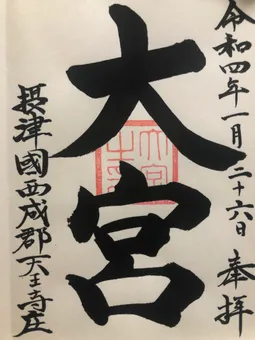 令和四年一月二十六日 奉拝
大宮
摂津國西成郡天王寺庄